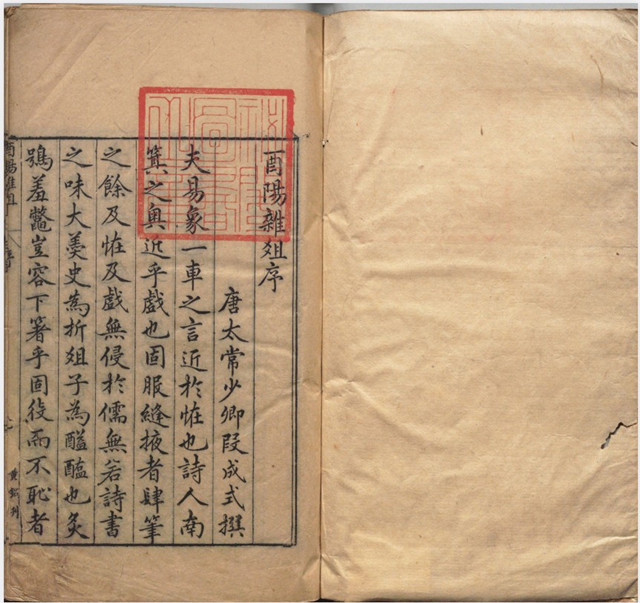 酉陽雜爼序
唐太常少卿段成式撰
夫易象一車之言近於恠也詩人南
箕之奧近乎戲也固服縫掖者肆筆
之餘及恠及戲無侵於儒無若詩書
之味大羮史為折爼子為醯醢也炙
鴞羞鼈豈容下箸乎固役而不恥者
酉陽雜爼